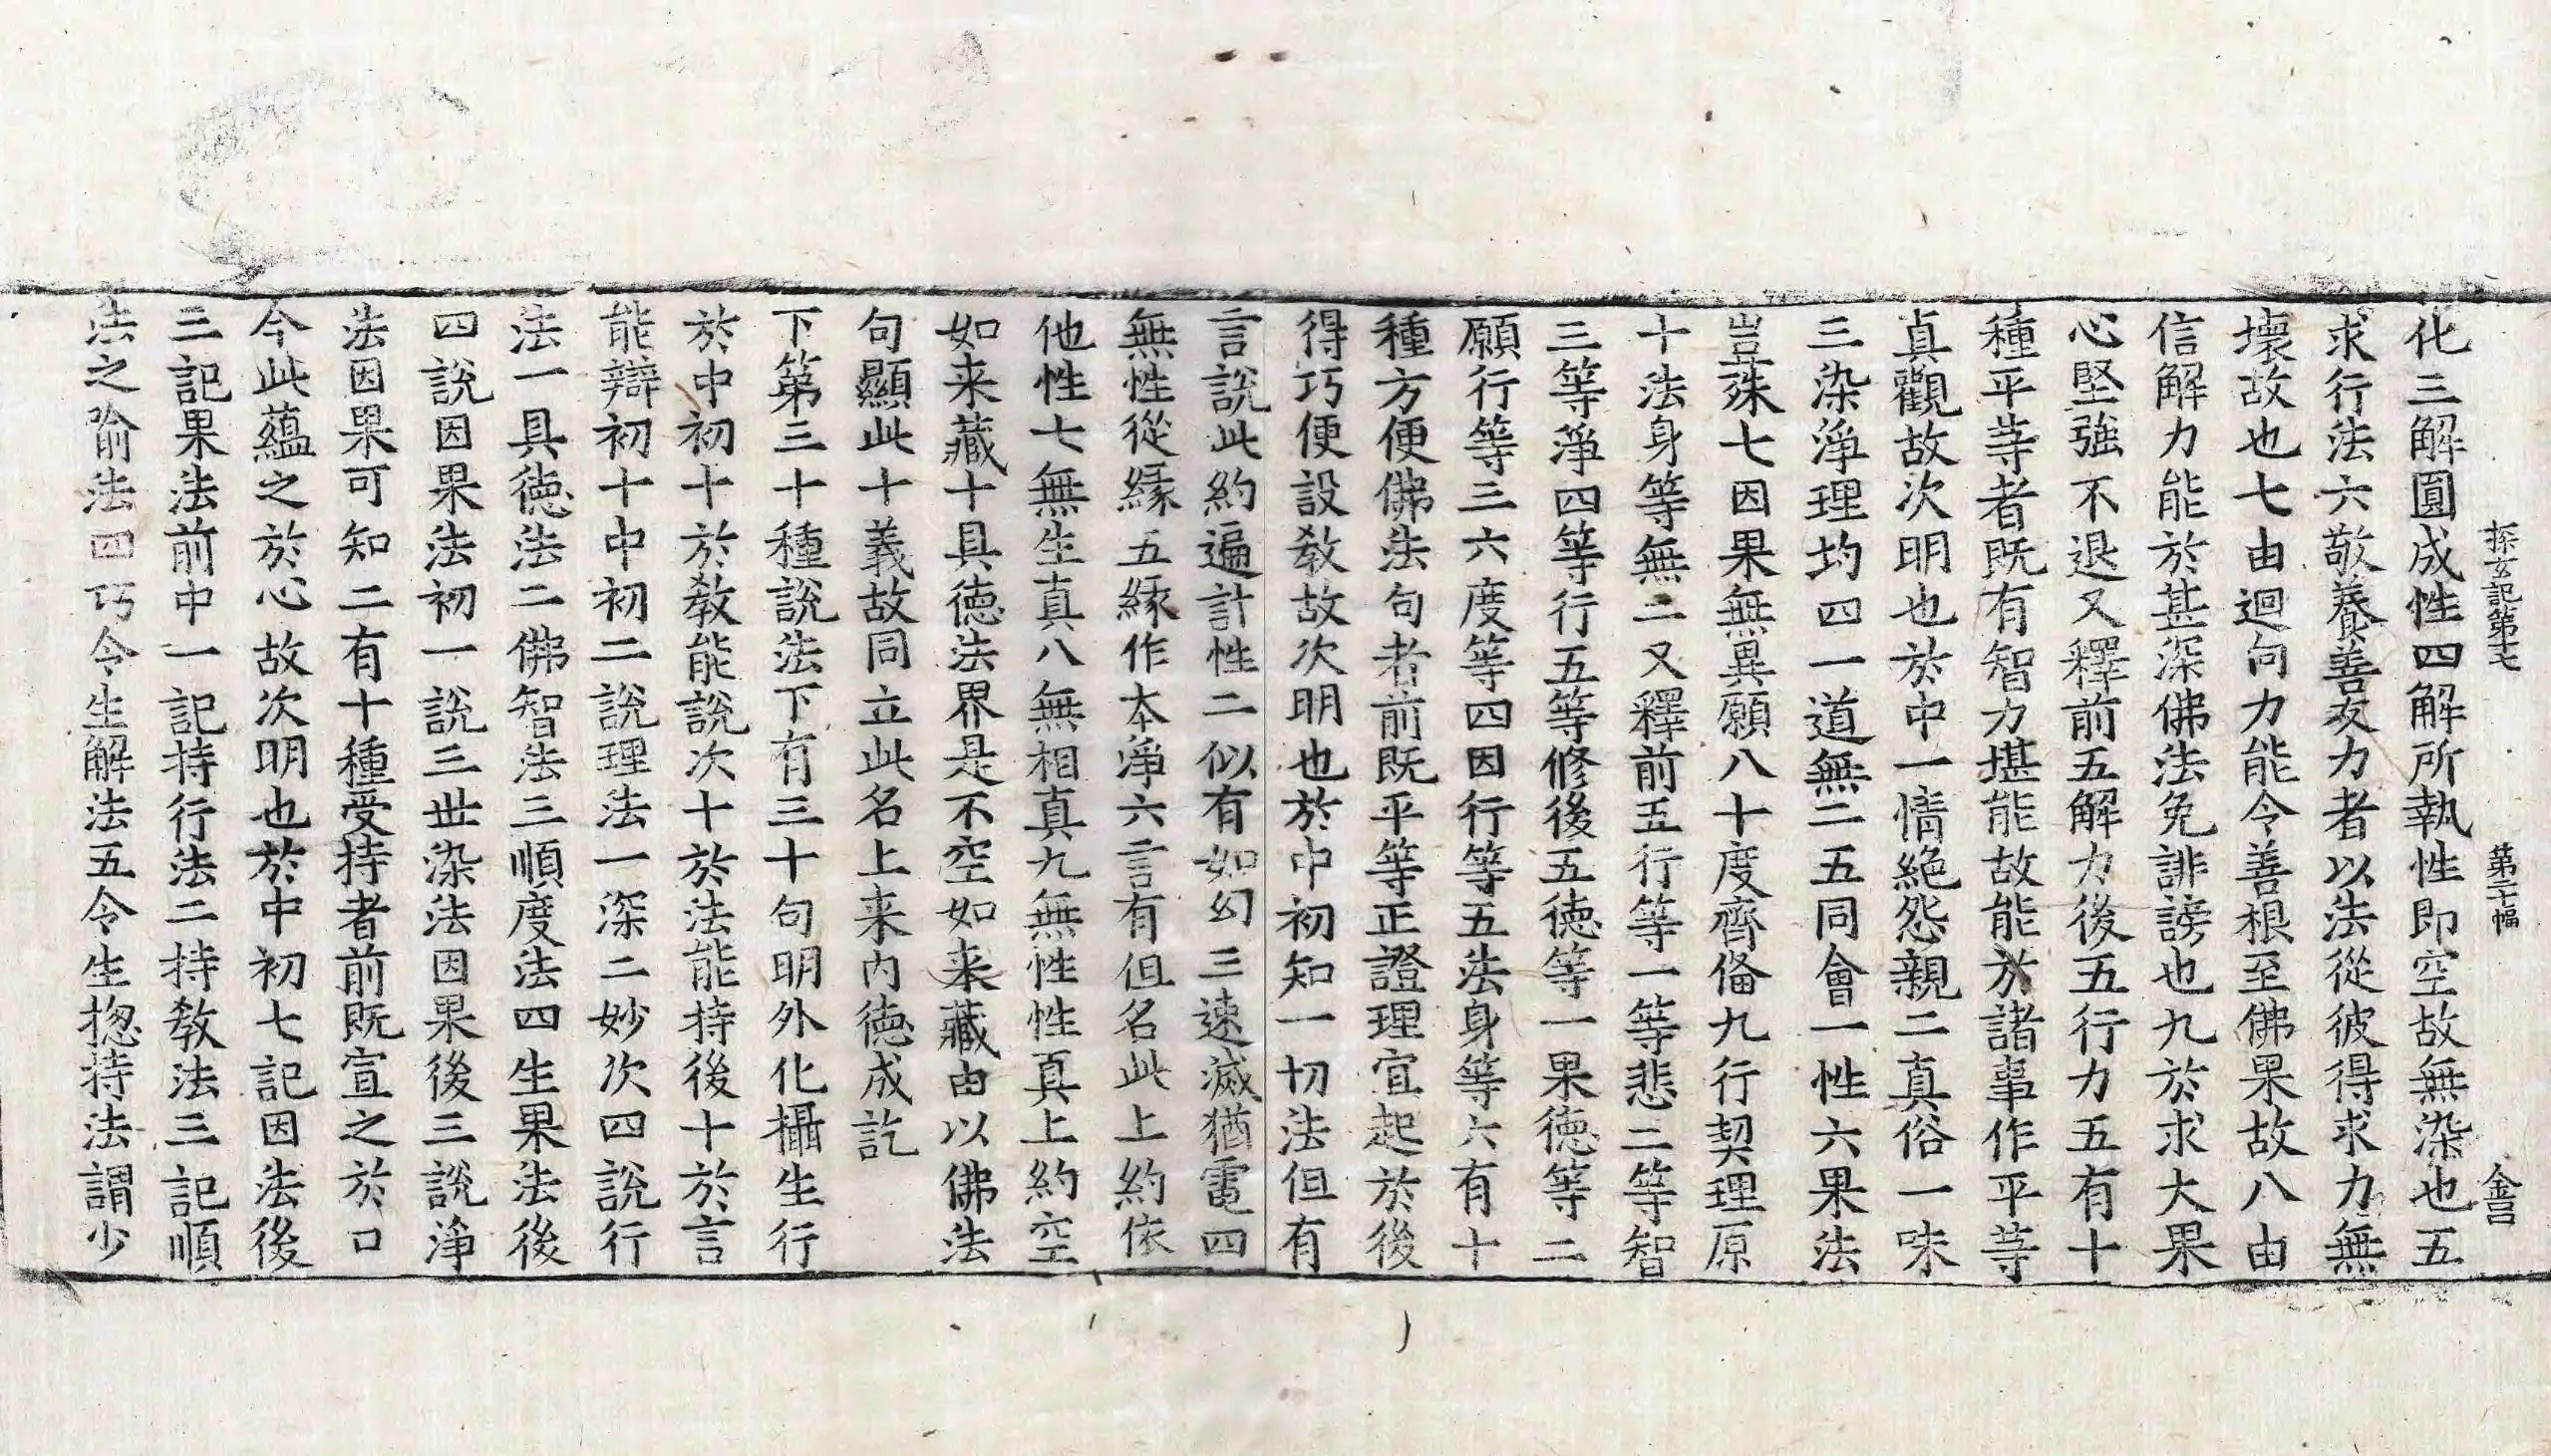 探玄記第十七　第二十幅　金吕
化三解圓成性四解所執性即空故無染也五
求行法六敬養善友力者以法從彼得求力無
壞故也七由迴向力能令善根至佛果故八由
信解力能於甚深佛法免誹謗也九於求大果
心堅強不退又釋前五解力後五行力五有十
種平等者既有智力堪能故能於諸事作平等
真觀故次明也於中一情絶怨親二真俗一味
三染淨理均四一道無二五同會一性六果法
豈殊七因果無異願八十度齊俻九行契理原
十法身等無二又釋前五行等一等悲二等智
三等淨四等行五等修後五德等一果德等二
願行等三六度等四因行等五法身等六有十
種方便佛法句者前既平等正證理宜起於後
得巧便設教故次明也於中初知一切法但有
言說此約遍計性二似有如幻三速滅猶電四
無性從緣五緣作本淨六言有但名此上約依
他性七無生真八無相真九無性性真上約空
如来藏十具德法界是不空如来藏由以佛法
句顯此十義故同立此名上来内德成訖
下第三十種說法下有三十句明外化攝生行
於中初十於教能說次十於法能持後十於言
能辯初十中初二說理法一深二妙次四說行
法一具德法二佛智法三順度法四生果法後
四說因果法初一說三世染法因果後三說淨
法因果可知二有十種受持者前既宣之於口
今此蘊之於心故次明也於中初七記因法後
三記果法前中一記持行法二持教法三記順
法之喻法四巧令生解法五令生揔持法謂少